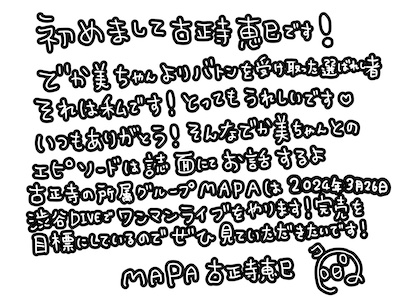 初めまして古正寺恵巳です!
でか美ちゃんよりバトンを受け取った選ばれし者
それは私です!とってもうれしいです♡
いつもありがとう!そんなでか美ちゃんとの
エピソードは誌面にてお話するよ
古正寺の所属グループMAPAは2024年3月26日
渋谷DIVEでワンマンライブをやります!完売を
目標にしているのでぜひ見ていただきたいです!
MAPA 古正寺恵巳